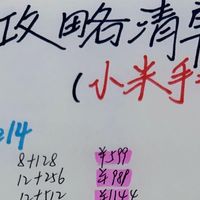 攻略清单
(小米手
14
8+128 ¥599
12+256 ¥989
12+512 ¥1144